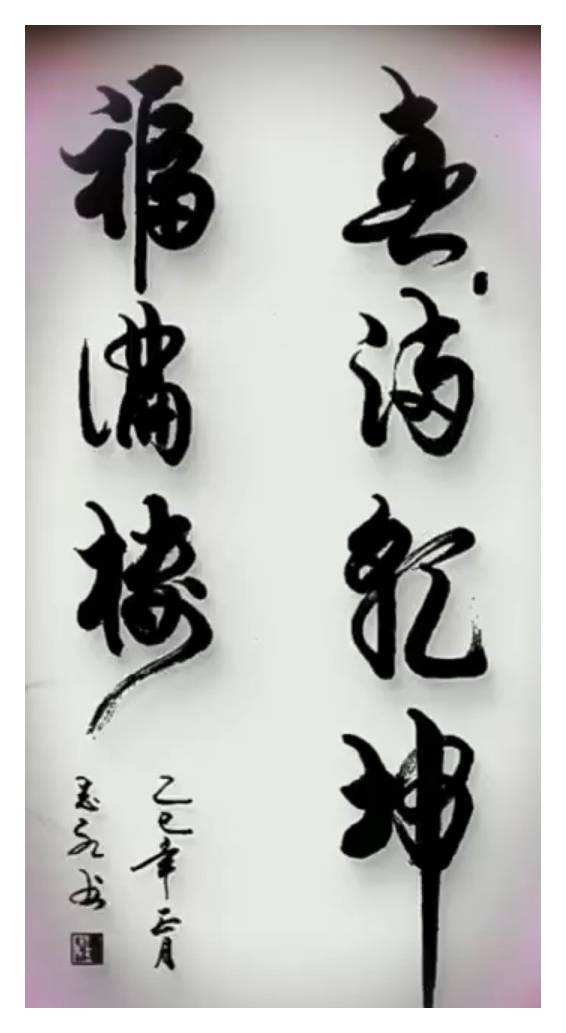 春满乾坤
福满楼
乙巳年正月
志永书